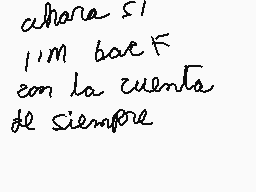 ahora si
I'M back
con la cuenta
de siempre